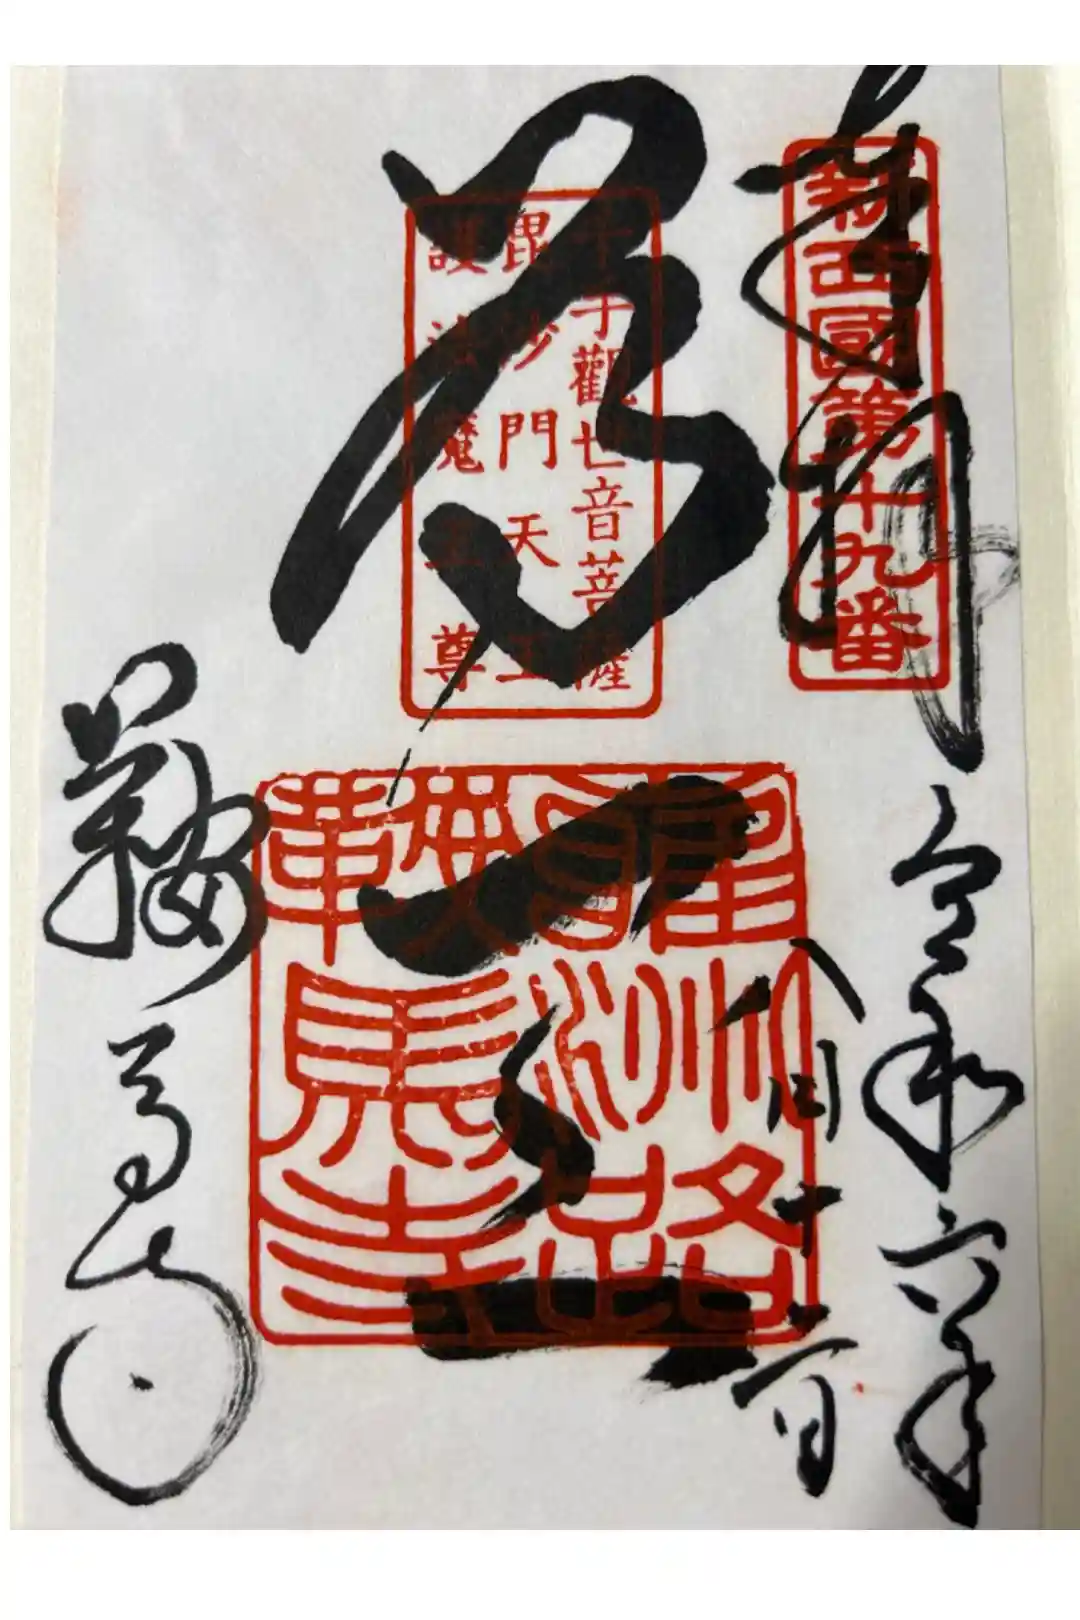 奉拝
新西國第十九番
令和六年
八月十二日
千手觀世音菩薩
毘沙門天王
護法魔王尊
雍州路
鞍馬寺
鞍馬寺